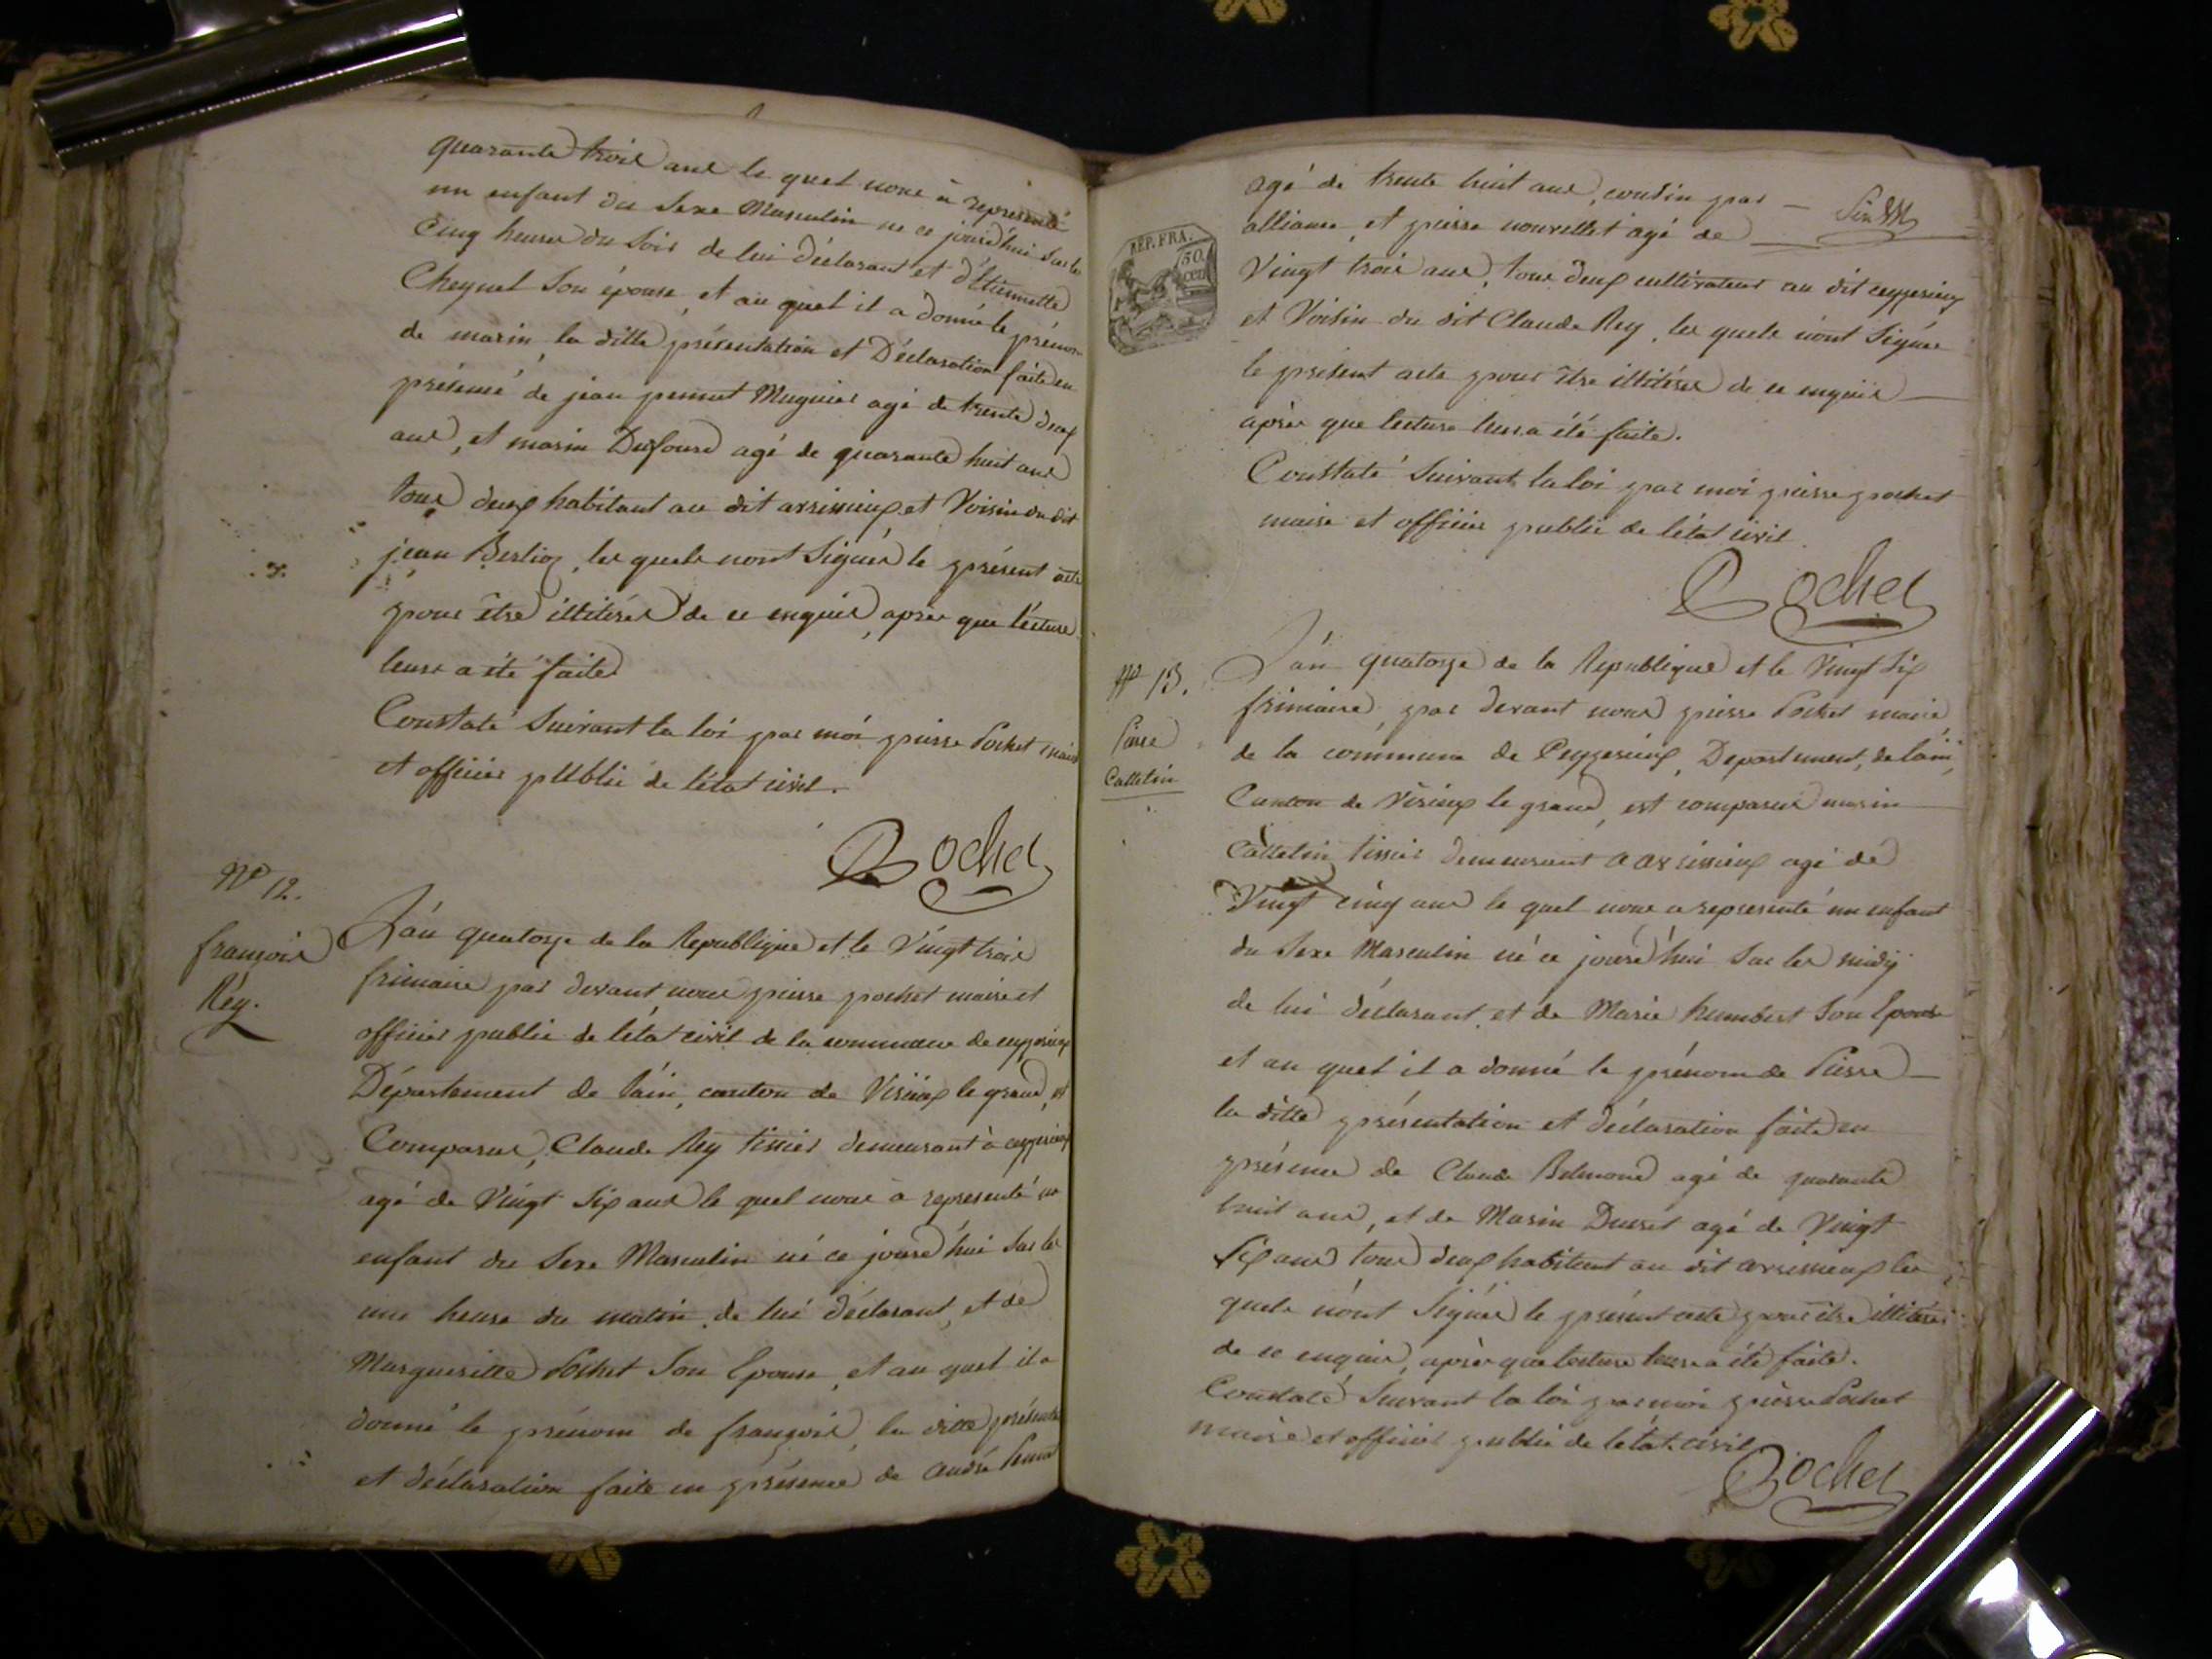 quarante trois ans le quel nous à representé
un enfant du Sexe Masculin né ce jourd'hui Sur les
Cinq heures du Soir de lui déclarant et d'Etiennette
Cheynel Son épouse, et au quel il a donné le prénom
de marin, la ditte présentation et Déclaration faite en
présence de jean pernet Muguier agé de trente deux
ans, et marin Dufours agé de quarante huit ans
tous deux habitant au dit arsissieux et Voisin du dit
jean Berlioz, les quels n'ont Signés le présent acte
pour être illitérés de ce enquis, après que lécture
leurs a été faites
Constaté Suivant la loi par moi pierre Pochet maire
et officier publié de létat civil.
Pochet
No 12.
françois
Réy.
L'an quatorze de la République et le Vingt trois
frimaire par devant nous pierre pochet maire et
officier public de létat civil de la commune de
Département de l'ain, canton de Virieux le grand, est
Comparus, Claude Rey tissier demeurant à
agé de Vingt Six ans le quel nous à representé un
enfant du Sexe Masculin né ce jourd'hui Sur les
une heure du matin, de lui déclarant, et de
Margueritte Pochet Son Epouse, et au quel il a
donné le prénom de françois, la ditte présenta
et déclaration faite en présence de andré
agé de trente huit ans, cousin par
alliance, et pierre nouvellet agé de
REP. FRA.
50 cen
Vingt trois ans, tous deux cultivateur au dit
et Voisin du dit Claude Rey, les quels n'ont Signés
le present acte pour être illitérés de ce enquis
après que lecture leurs a été faite.
Constaté Suivant la loi par moi pierre pochet
maire et officier public de létat civil
Pochet
No 13.
Pierre
Calletin
L'an quatorze de la Republique et le Vingt Six
frimaire, par devant nous pierre Pochet maire
de la commune de Peyzieux, Departement, de lain,
Canton de Virieux le grand, est comparus marin
Calletin tissier demeurant a arsissieux agé de
Vingt cinq ans le quel nous a representé un enfant
du Sexe Masculin né ce jourd'hui Sur les midy
de lui déclarant, et de Marie humbert Son Epouse
et au quel il a donné le prénom de Pierre
la ditte présentation et déclaration faite en
présence de Claude Belmond agé de quarante
huit ans, et de Marin Ducret agé de Vingt
Six ans tous deux habitant au dit arsissieux les
quels n'ont Signés le présent acte pour être illitérés
de ce enquis, après que lecture leurs a été faite.
Constaté Suivant la loi par moi pierre Pochet
maire et officier public de létat civil
Pochet